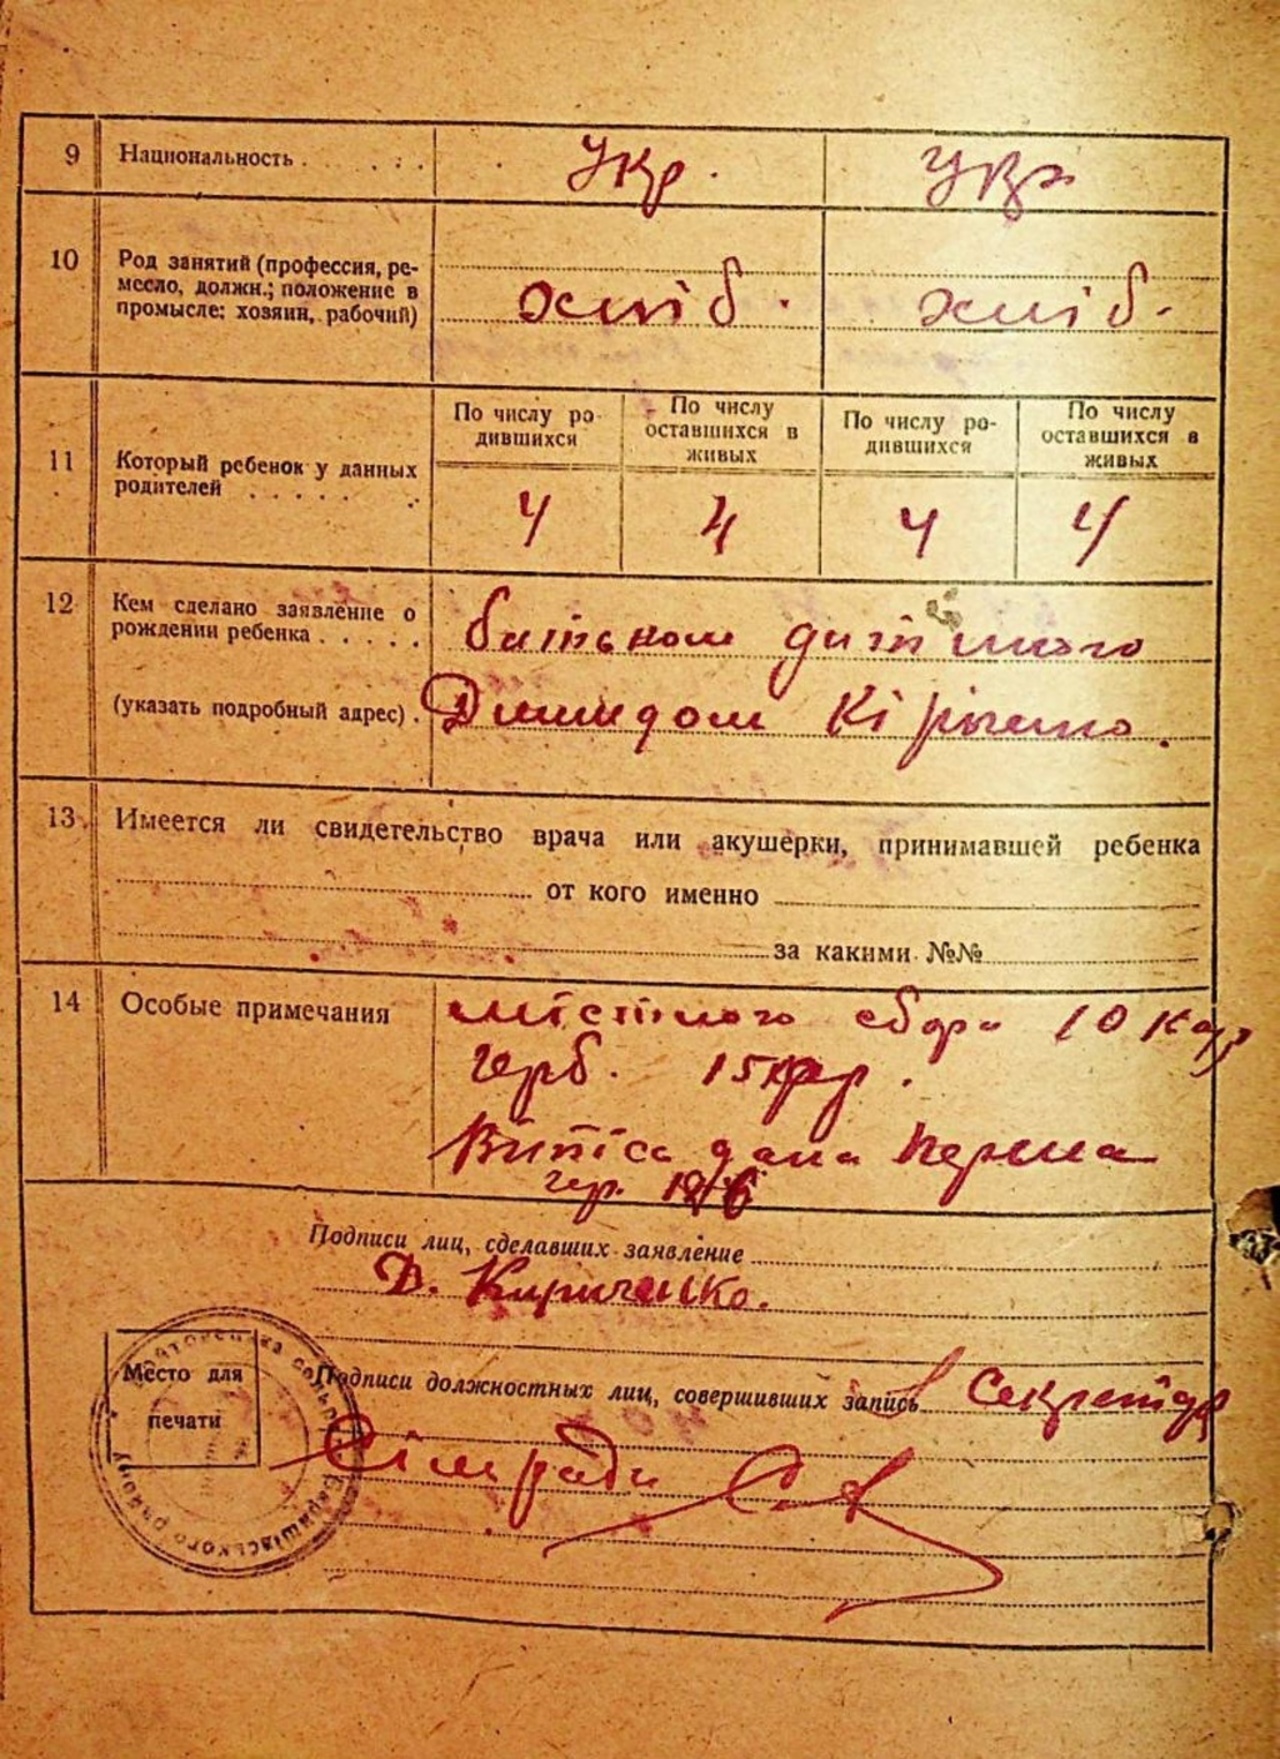 9 Национальность . . . . : . Укр. Укр
10 Род занятий (профессия, ре-
месло, должн.; положение в
промысле: хозяин, рабочий) хліб. хліб.
11 Который ребенок у данных
родителей . . . . . .
По числу ро-
дившихся
По числу
оставшихся в
живых
По числу ро-
дившихся
По числу
оставшихся в
живых
4 4 4 4
12 Кем сделано заявление о
рождении ребенка . . . . .
(указать подробный адрес) .
батьком
Діамидом
13. Имеется ли свидетельство врача или акушерки, принимавшей ребенка
от кого именно
за какими №№
14 Особые примечания
містного сбору 10 кар
герб. 15 кар.
Випіса дана
Подписи лиц, сделавших заявление
Д. Кириченко.
Место для
печати
Подписи должностных лиц, совершивших запись Секретар
Сімради
сельра
Баришівського району